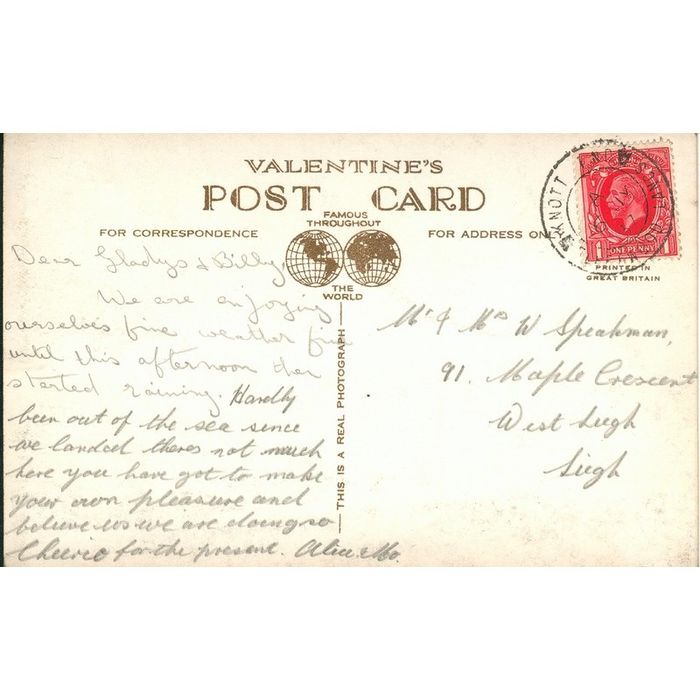 VALENTINE'S
POST CARD
FAMOUS
THROUGHOUT
THE
WORLD
FOR CORRESPONDENCE
FOR ADDRESS ONLY
ONE PENNY
PRINTED IN
GREAT BRITAIN
THIS IS A REAL PHOTOGRAPH
KNOTT END
Dear Gladys & Billy,
We are enjoying
ourselves fine weather fine
until this afternoon
started raining. Hardly
been out of the sea sence
we landed theres not much
here you have got to make
your own pleasure and
believe us we are doing so
Cheerio for the present. Alice & Mo.
Mr & Mrs W Speakman,
91. Maple Crescent
West Leigh
Leigh